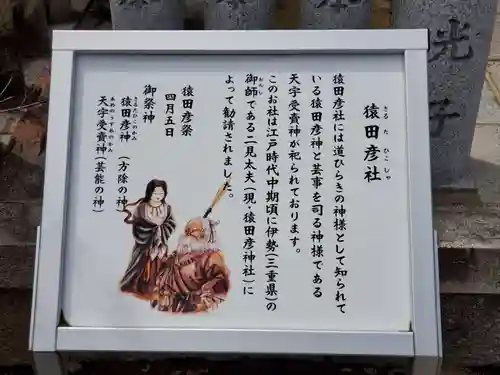 猿田彦社
さるたひこしゃ
猿田彦社には道ひらきの神様として知られて
いる猿田彦神と芸事を司る神様である
天宇受賣神が祀られております。
このお社は江戸時代中期頃に伊勢(三重県)の
御師である二見太夫(現・猿田彦神社)に
おんし
よって勧請されました。
猿田彦祭
四月五日
御祭神
猿田彦神 (方除の神)
さるたひこのかみ
天宇受賣神(芸能の神)
あめのうずめのかみ
光
子